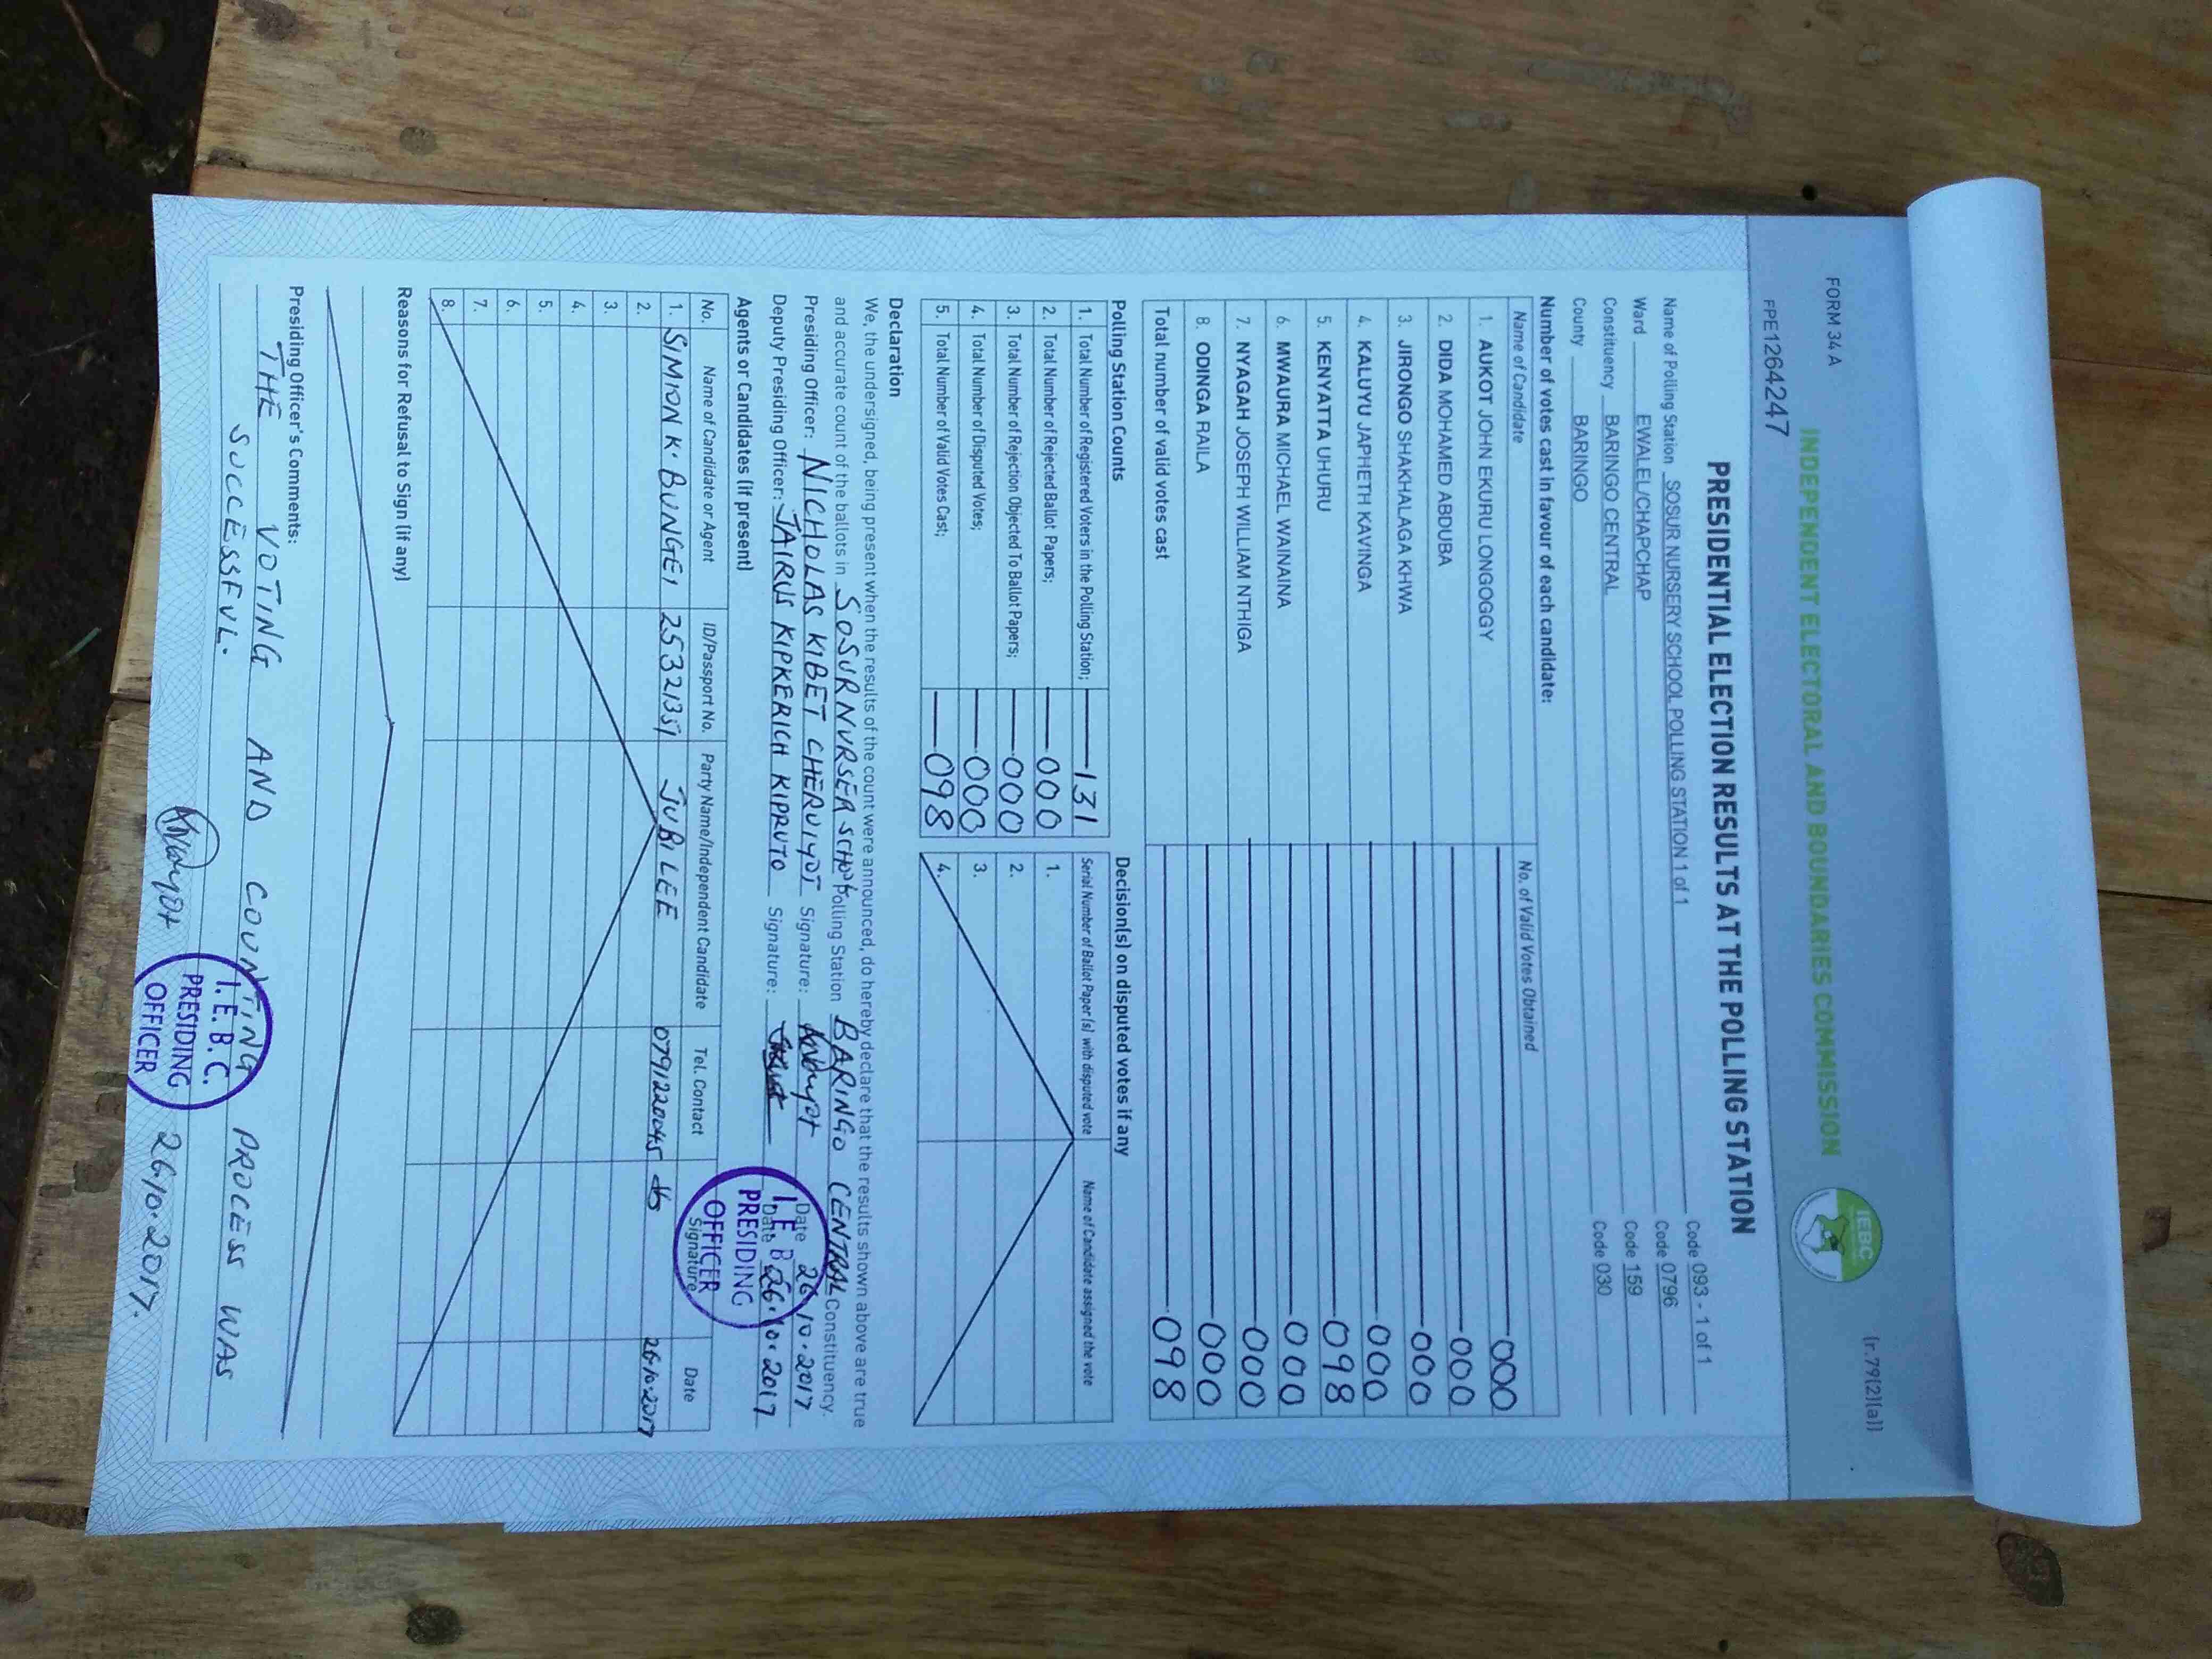 FORM 34 A
(r.79(2)(a))
INDEPENDENT ELECTORAL AND BOUNDARIES COMMISSION
IEBC
FPE1264247
PRESIDENTIAL ELECTION RESULTS AT THE POLLING STATION
Name of Polling Station SOSUR NURSERY SCHOOL POLLING STATION 1 of 1 Code 093 - 1 of 1
Ward EWALEL/CHAPCHAP Code 0796
Constituency BARINGO CENTRAL Code 159
County BARINGO Code 030
Number of votes cast in favour of each candidate:
Name of Candidate No. of Valid Votes Obtained
1. AUKOT JOHN EKURU LONGOGGY 000
2. DIDA MOHAMED ABDUBA 000
3. JIRONGO SHAKHALAGA KHWA 000
4. KALUYU JAPHETH KAVINGA 000
5. KENYATTA UHURU 098
6. MWAURA MICHAEL WAINAINA 000
7. NYAGAH JOSEPH WILLIAM NTHIGA 000
8. ODINGA RAILA 000
Total number of valid votes cast 098
Polling Station Counts Decision(s) on disputed votes if any
1. Total Number of Registered Voters in the Polling Station; 131 Serial Number of Ballot Paper (s) with disputed vote Name of Candidate assigned the vote
2. Total Number of Rejected Ballot Papers; 000 1.
3. Total Number of Rejection Objected To Ballot Papers; 000 2.
4. Total Number of Disputed Votes; 000 3.
5. Total Number of Valid Votes Cast; 098 4.
Declaration
We, the undersigned, being present when the results of the count were announced, do hereby declare that the results shown above are true
and accurate count of the ballots in SOSUR NURSER SCHOOL Polling Station BARINGO CENTRAL Constituency.
Presiding Officer: NICHOLAS KIBET CHERUIYOT Signature: Date 26.10.2017
Deputy Presiding Officer: JAIRUS KIPKERICH KIPRUTO Signature: Date 26.10.2017
I. E. B.
PRESIDING
OFFICER
Agents or Candidates (if present)
No. Name of Candidate or Agent ID/Passport No. Party Name/Independent Candidate Tel. Contact Signature Date
1. SIMION K. BUNGEI 25321351 JUBILEE 0791220045 26.10.2017
2.
3.
4.
5.
6.
7.
8.
Reasons for Refusal to Sign (if any)
Presiding Officer's Comments:
THE VOTING AND COUNTING PROCESS WAS
SUCCESSFUL.
26.10.2017.
I. E. B. C.
PRESIDING
OFFICER